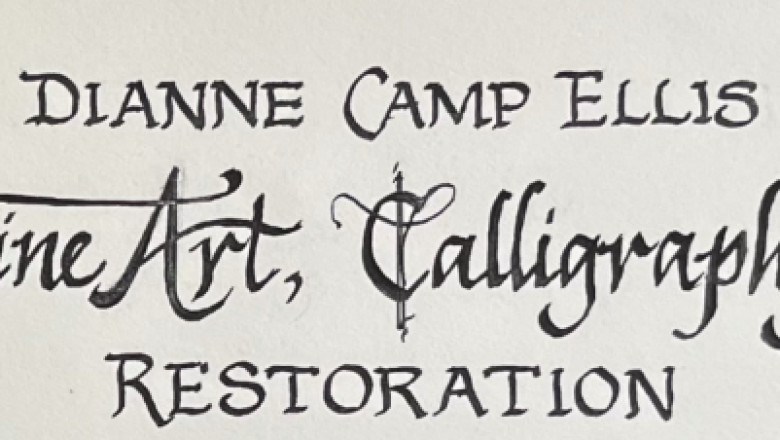 DIANNE CAMP ELLIS
ine Art, Calligraphy
RESTORATION